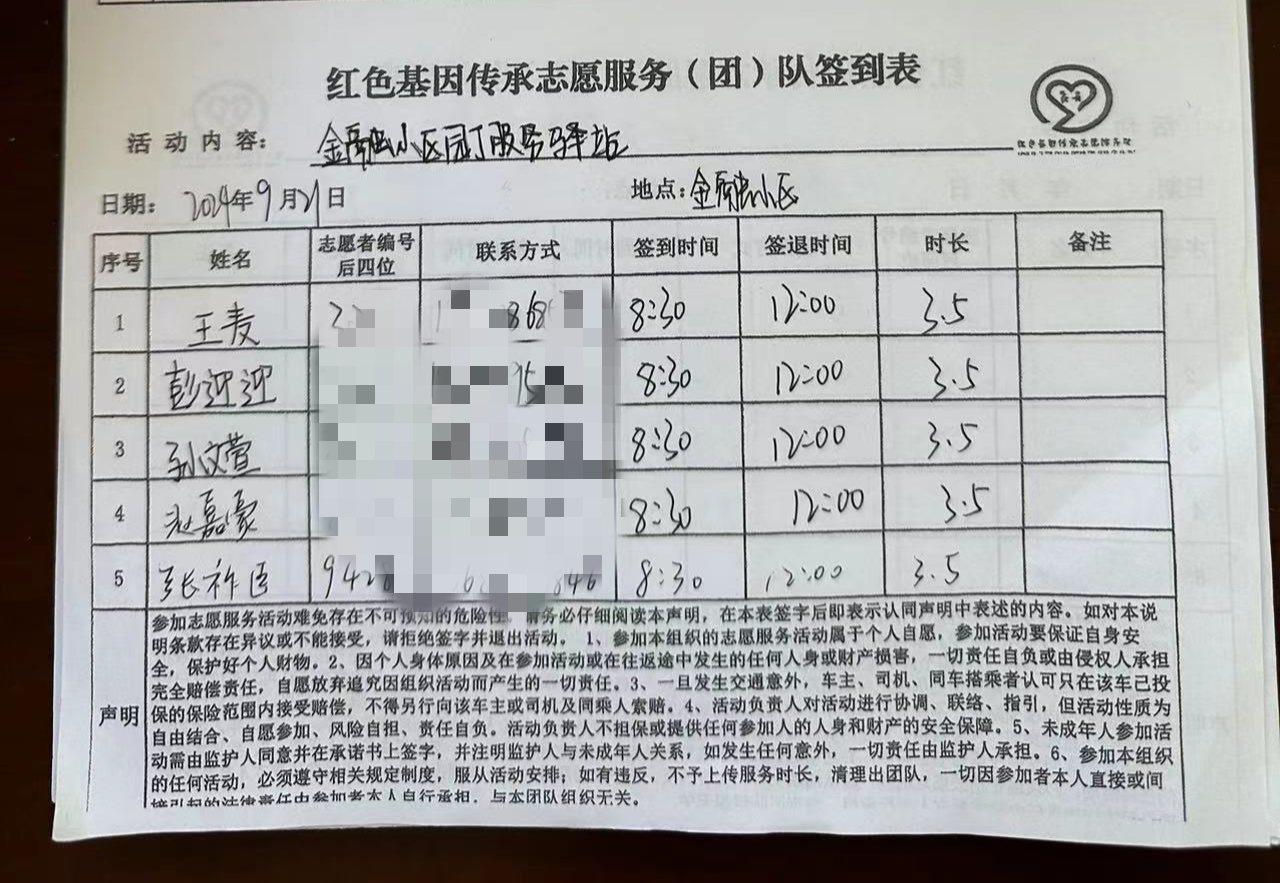 红色基因传承志愿服务（团）队签到表
活动内容： 金融小区园丁服务驿站
日期： 2024年9月21日 地点：金融小区
序号 姓名 志愿者编号后四位 联系方式 签到时间 签退时间 时长 备注
1 王麦 8:30 12:00 3.5
2 彭迎迎 8:30 12:00 3.5
3 孙文萱 8:30 12:00 3.5
4 赵嘉豪 8:30 12:00 3.5
5 8:30 12:00 3.5
声明
参加志愿服务活动难免存在不可预知的危险性，请务必仔细阅读本声明，在本表签字后即表示认同声明中表述的内容。如对本说
明条款存在异议或不能接受，请拒绝签字并退出活动。 1、参加本组织的志愿服务活动属于个人自愿，参加活动要保证自身安
全，保护好个人财物。2、因个人身体原因及在参加活动或在往返途中发生的任何人身或财产损害，一切责任自负或由侵权人承担
完全赔偿责任，自愿放弃追究因组织活动而产生的一切责任。3、一旦发生交通意外，车主、司机、同车搭乘者认可只在该车已投
保的保险范围内接受赔偿，不得另行向该车主或司机及同乘人索赔。4、活动负责人对活动进行协调、联络、指引，但活动性质为
自由结合、自愿参加、风险自担、责任自负。活动负责人不担保或提供任何参加人的人身和财产的安全保障。5、未成年人参加活
动需由监护人同意并在承诺书上签字，并注明监护人与未成年人关系，如发生任何意外，一切责任由监护人承担。6、参加本组织
的任何活动，必须遵守相关规定制度，服从活动安排；如有违反，不予上传服务时长，清理出团队，一切因参加者本人直接或间
接引起的法律责任由参加者本人自行承担，与本团队组织无关。